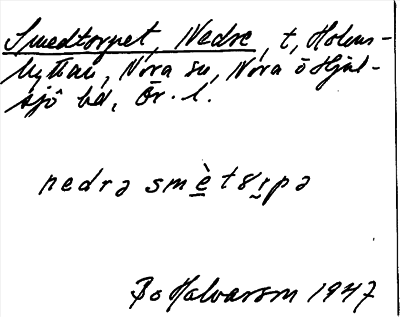 Smedtorpet, Nedre, t, Holms-
hyttan, Nora sn, Nora o Hjul-
sjö bd, Ör. l.
nedrə smètɤrpə
Bo Halvarson 1947